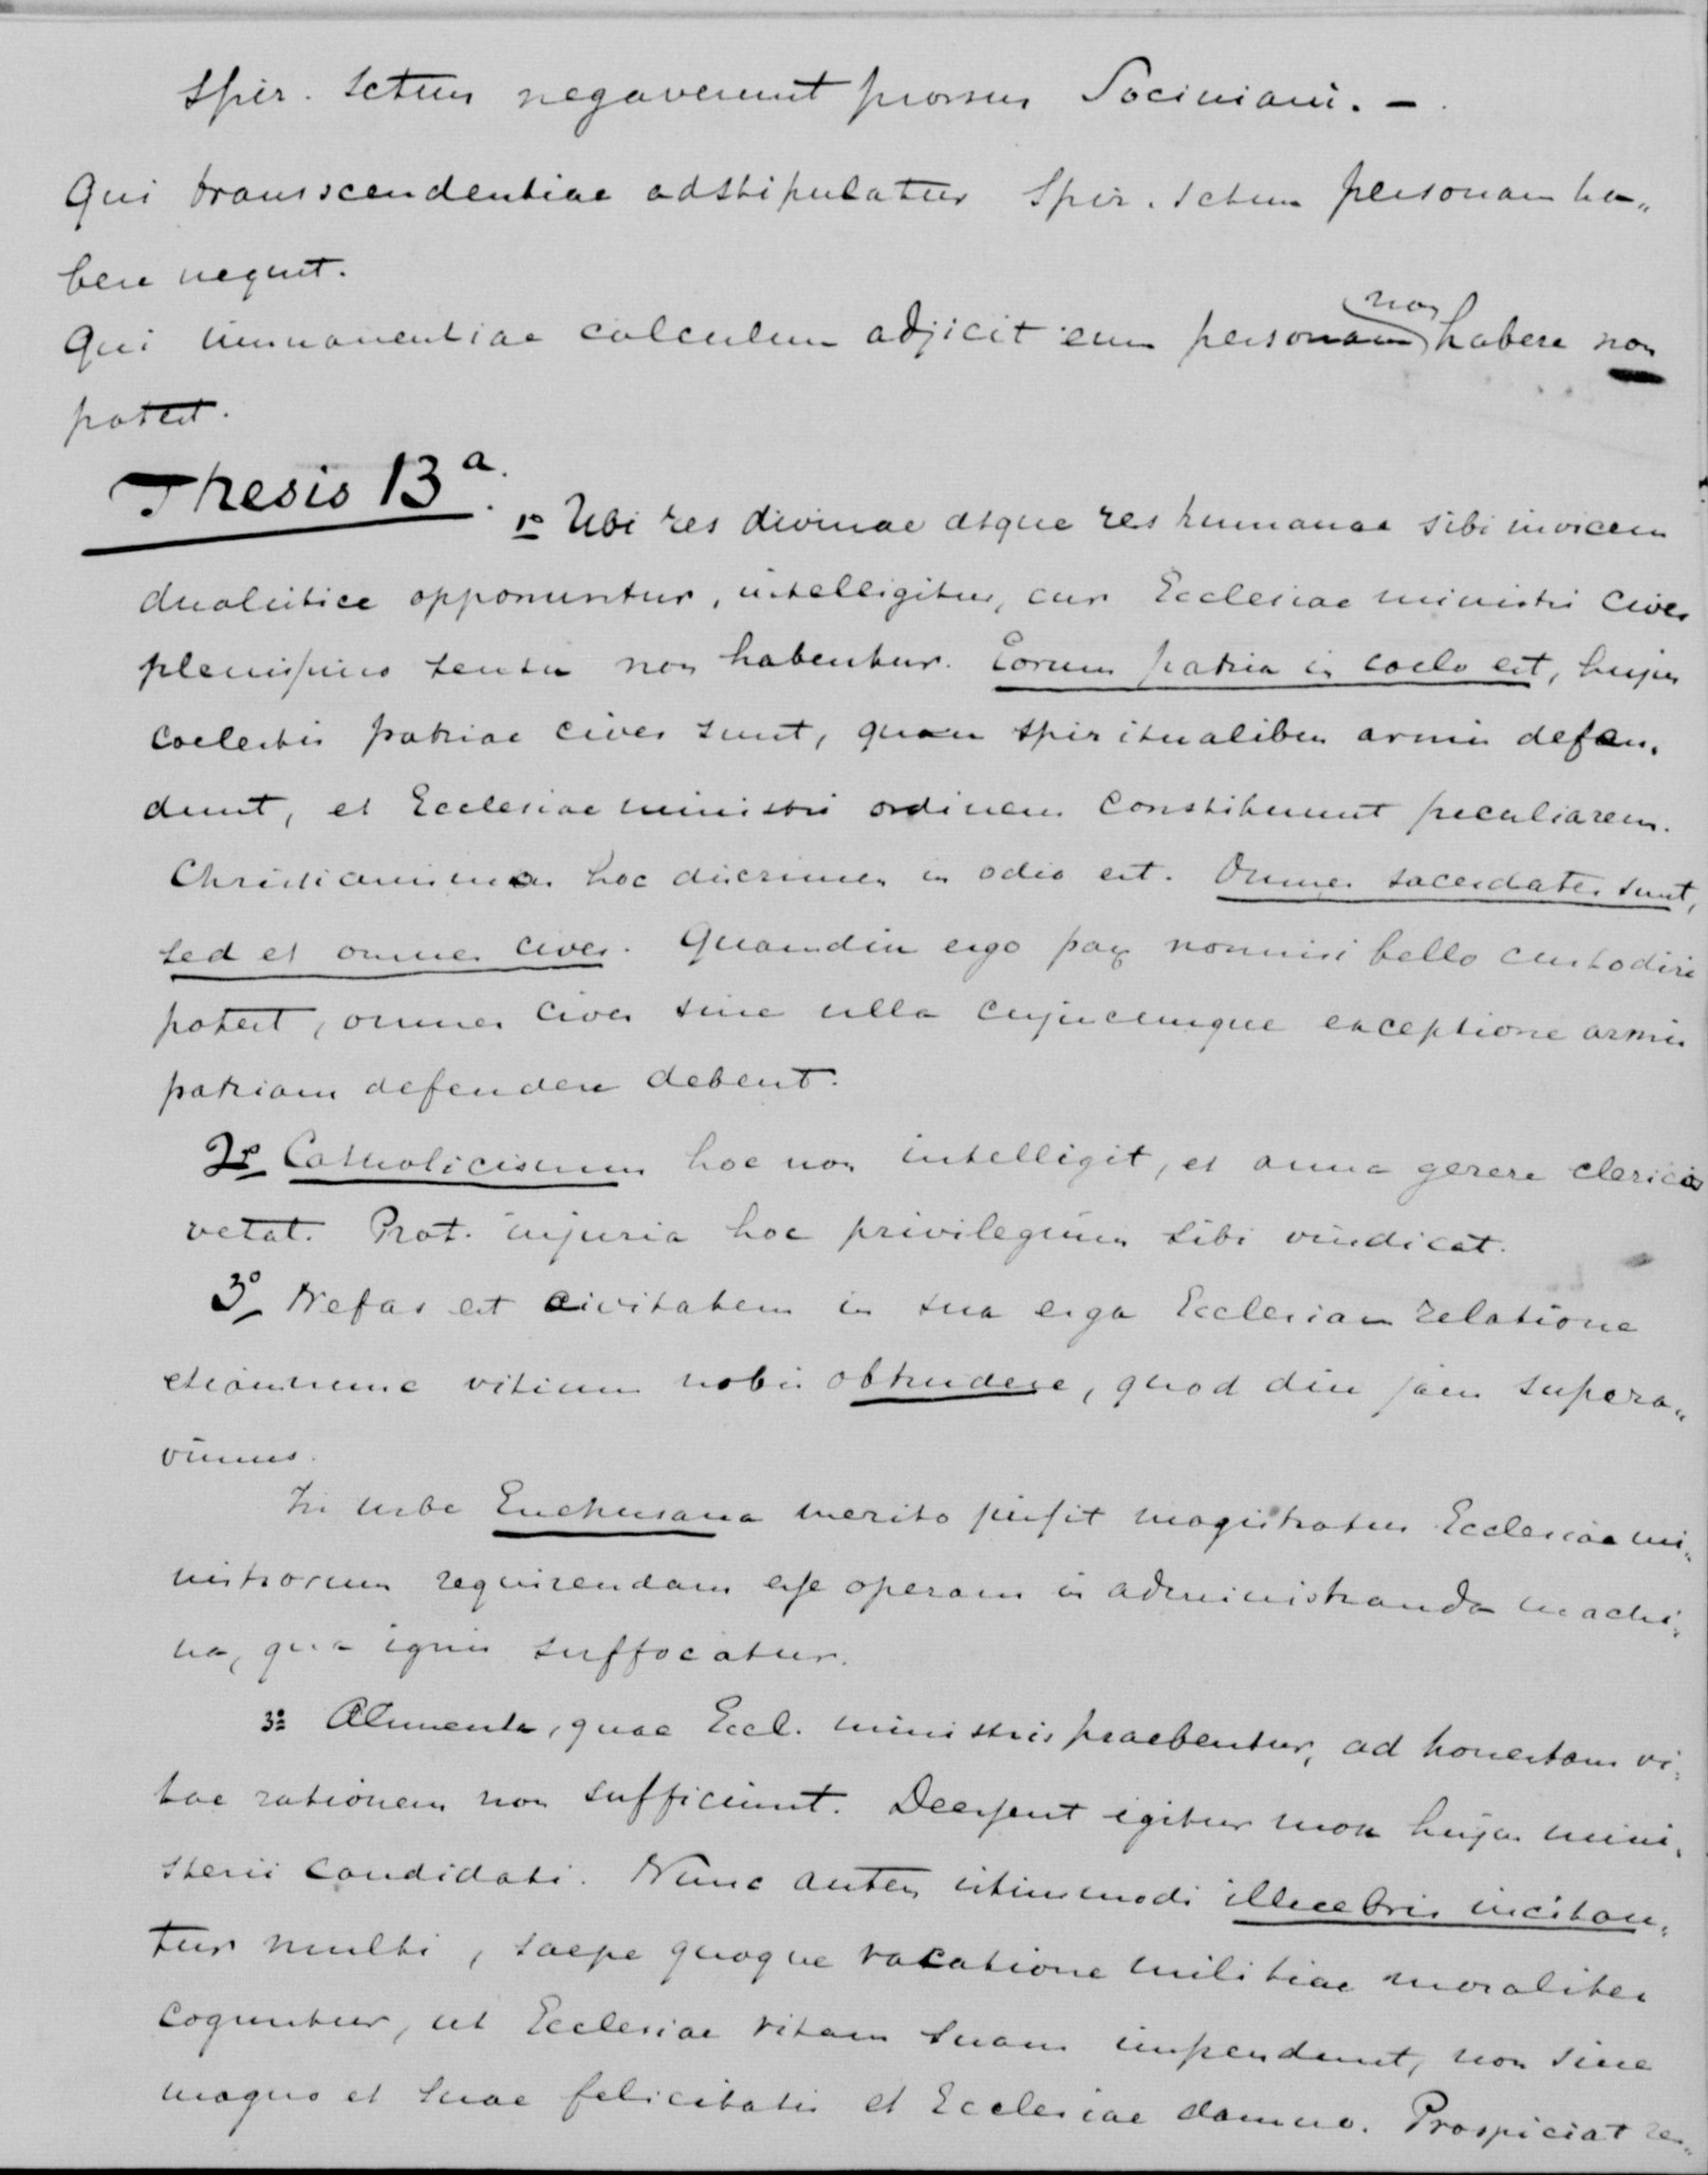 Spir. Sctum negaverunt prorsus Sociniani. –
Qui transscendentiae adstipulatur Spir. Sctum personam ha„
bere nequit.
Qui immanentiae calculum adjicit eum personam non habere non
potest.
Thesis 13a.
1o Ubi res divinae atque res humanae sibi invicem
dualistice opponuntur, intelligitur, cur Ecclesiae ministri cives
plenissimo sensu non habentur. Eorum patria in coelo est, hujus
coelestis patriae cives sunt, quam spiritualibus armis defen„
dunt, et Ecclesiae ministri ordinem constituunt peculiarem.
Christianismo hoc discrimen in odio est. Omnes sacerdotes sunt,
sed et omnes cives. Quamdiu ergo pax nonnisi bello custodiri
potest, omnes cives sine ulla cujuscunque exceptione armis
patriam defendere debent.
2o Catholicismus hoc non intelligit, et arma gerere clericos
vetat. Prot. injuria hoc privilegium sibi vindicat.
3o Nefas est civitatem in sua erga Ecclesiam relatione
etiamnunc vitium nobis obtrudere, quod diu jam supera„
vimus.
In urbe Enchusana merito jussit magistratus Ecclesiae mi„
nistrorum requirendam esse operam in administranda machi„
na, qua ignis suffocatur.
3o Alimenta, quae Eccl. ministris praebentur, ad honestam vi„
tae rationem non sufficiunt. Deessent igitur mox hujus mini„
sterii candidati. Nunc autem istiusmodi illecebris incitan„
tur multi, saepe quoque vacatione militiae moraliter
coguntur, ut Ecclesiae vitam suam impendant, non sine
magno et suae felicitatis et Ecclesiae damno. Prospiciat